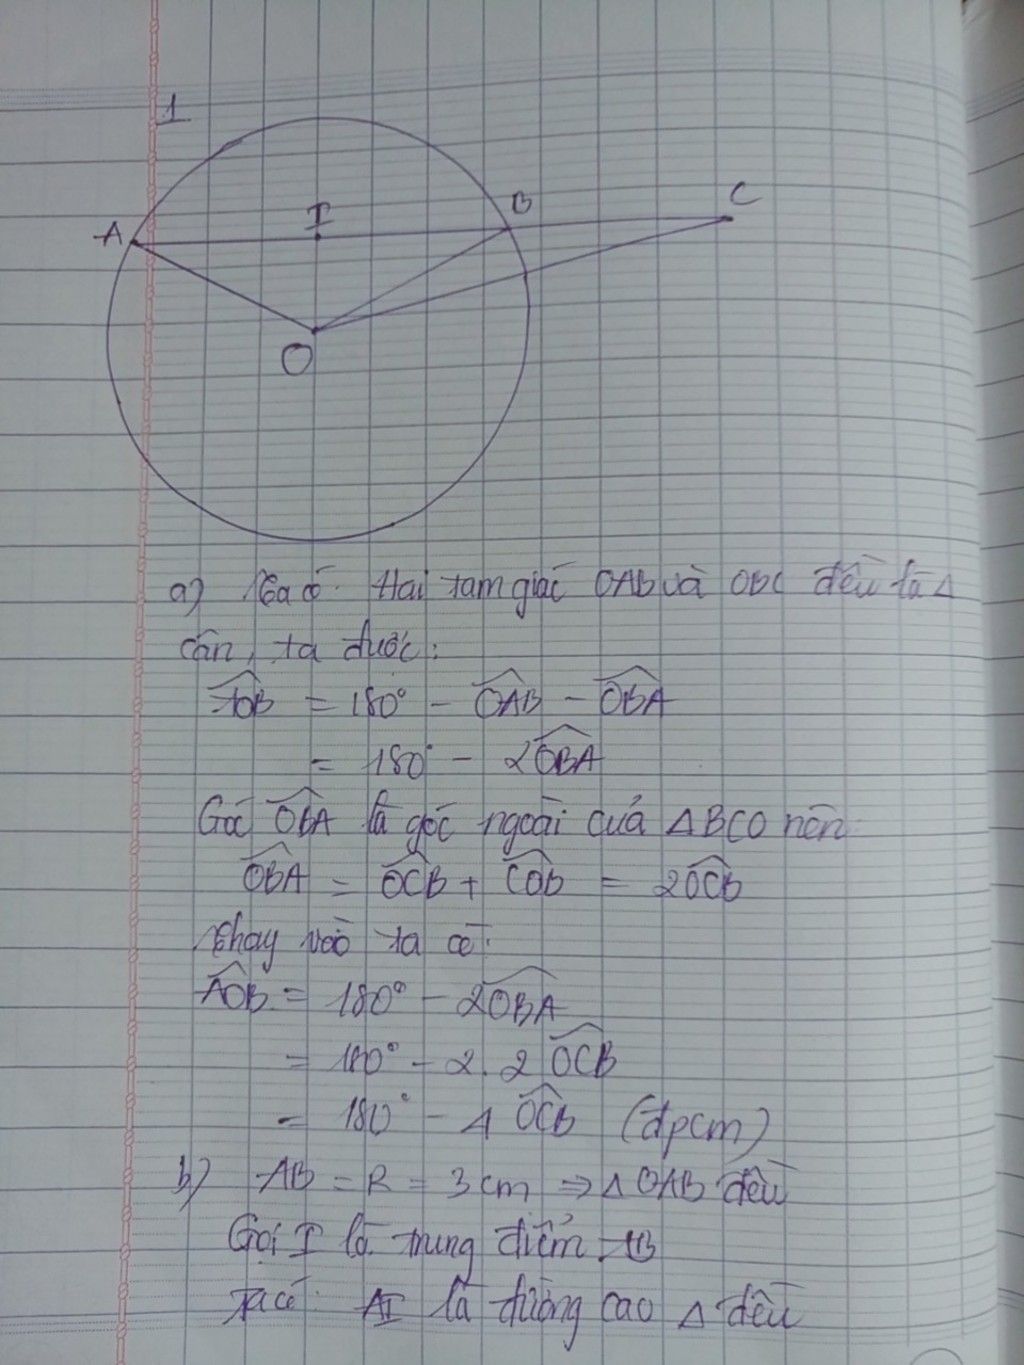 1
A
I
B
C
O
a) Ta có: Hai tam giác OAB và OBC đều là Δ
cân, ta được:
\widehat{AOB} = 180° - \widehat{OAB} - \widehat{OBA}
= 180° - 2\widehat{OBA}
Góc \widehat{OBA} là góc ngoài của ΔBCO nên
\widehat{OBA} = \widehat{OCB} + \widehat{COB} = 2\widehat{OCB}
Thay vào ta có:
\widehat{AOB} = 180° - 2\widehat{OBA}
= 180° - 2.2 \widehat{OCB}
= 180° - 4 \widehat{OCB} (đpcm)
b) AB = R = 3cm => Δ OAB đều
Gọi I là trung điểm AB
Ta có: AI là đường cao Δ đều